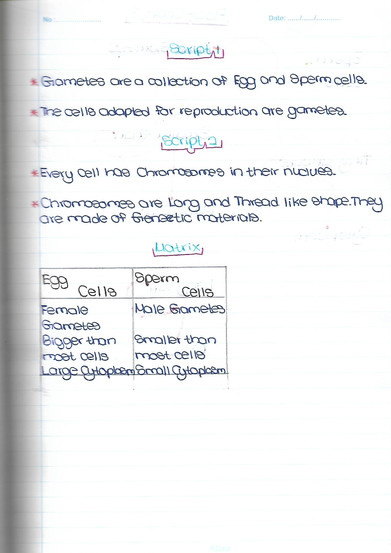 No:
Date:
Script 1
* Gametes are a collection of Egg and Sperm cells.
* The cells adapted for reproduction are gametes.
Script 2
* Every cell has Chromosomes in their nuclues.
* Chromosomes are Long and Thread like shape. They
are made of Geneetic materials.
Matrix
Egg Cells
Sperm Cells
Female Gametes
Male Gametes
Bigger than most cells
Smaller than most cells
Large Cytoplasm
Small Cytoplasm